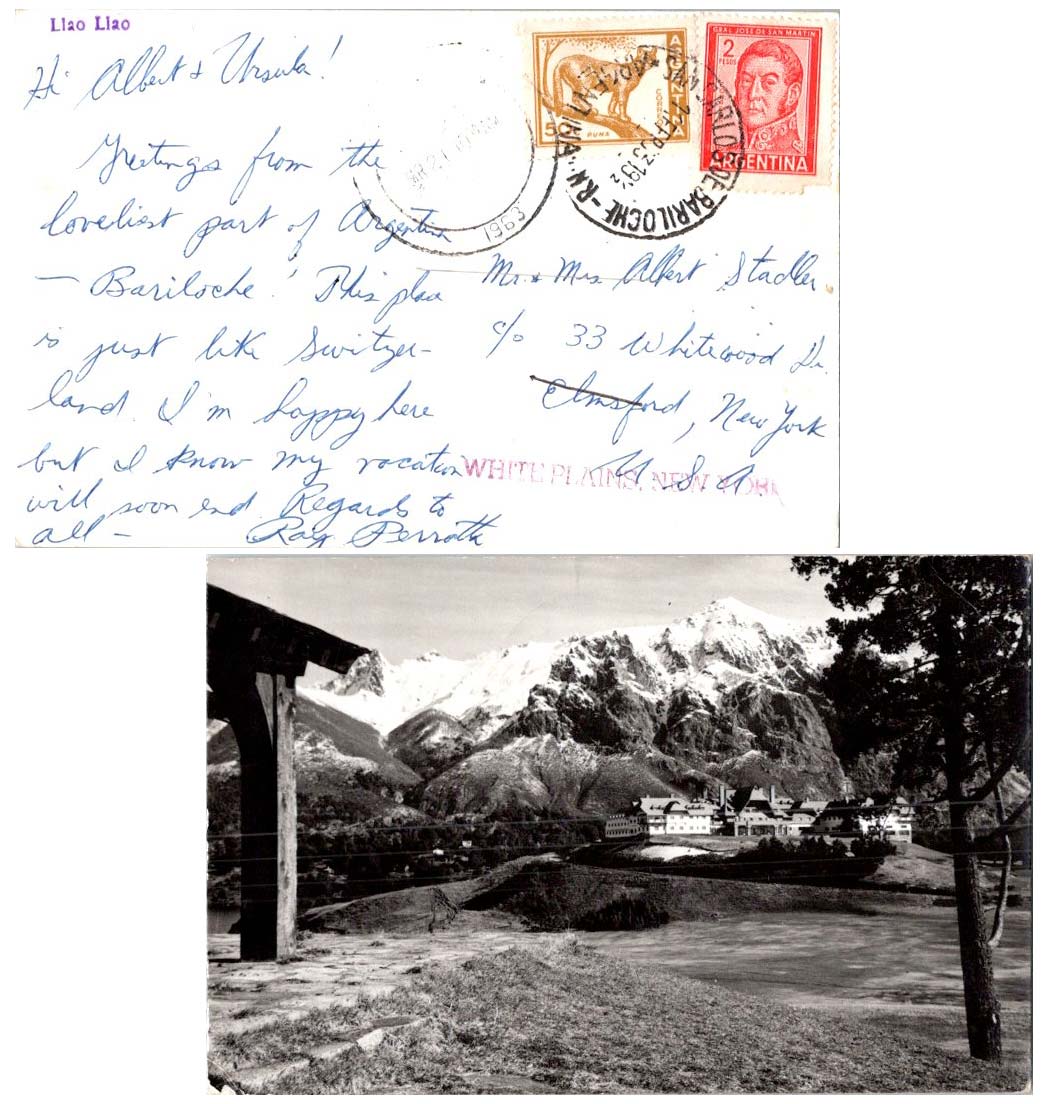 Llao Llao
Hi Albert & Ursula!
Greetings from the
loveliest part of Argentina
— Bariloche! This place
is just like Switzer-
land. I'm happy here
but I know my vacation
will soon end. Regards to
all — Ray
ARGENTINA
CORREOS
5
PUMA
GRAL. JOSE DE SAN MARTIN
2
PESOS
ARGENTINA
1963
SAN CARLOS DE BARILOCHE - R.N.
ARGENTINA
Mr. & Mrs. Albert Stadler
c/o 33 Whitewood Dr.
Elmsford, New York
U S A
WHITE PLAINS, NEW YORK